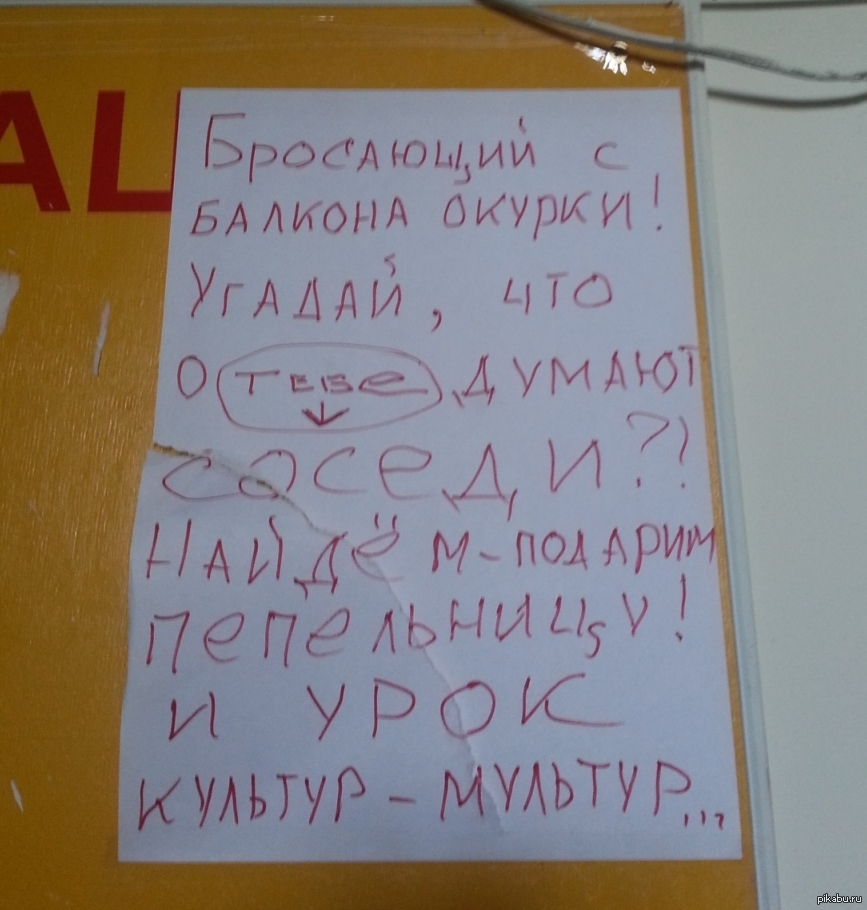 AL
Бросающий с
БАЛКОНА ОКУРКИ!
УГАДАЙ, ЧТО
О ТЕБЕ ДУМАЮТ
СОСЕДИ?!
НАЙДЁМ-ПОДАРИМ
ПЕПЕЛЬНИЦУ!
И УРОК
КУЛЬТУР-МУЛЬТУР...
pikabu.ru